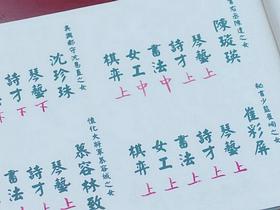 書右丞陳達之女
陳璇瑛
琴藝 上
詩才 上
書法 中
女工 中
棋弈 上
吳興郡守沈易直之女
沈珍珠
琴藝 下
詩才 下
秘書少監崔峋之女
崔彩屏
琴藝 上
詩才 上
書法 上
女工 上
棋弈 上
懷化大將軍慕容城之女
慕容林致
琴藝 上
詩才 上
書法